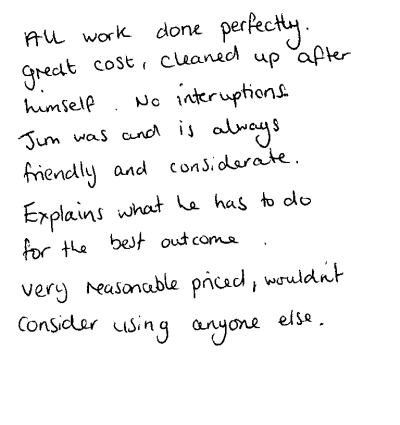 All work done perfectly.
great cost, cleaned up after
himself. No interuptions.
Jim was and is always
friendly and considerate.
Explains what he has to do
for the best outcome.
very reasonable priced, wouldn't
consider using anyone else.